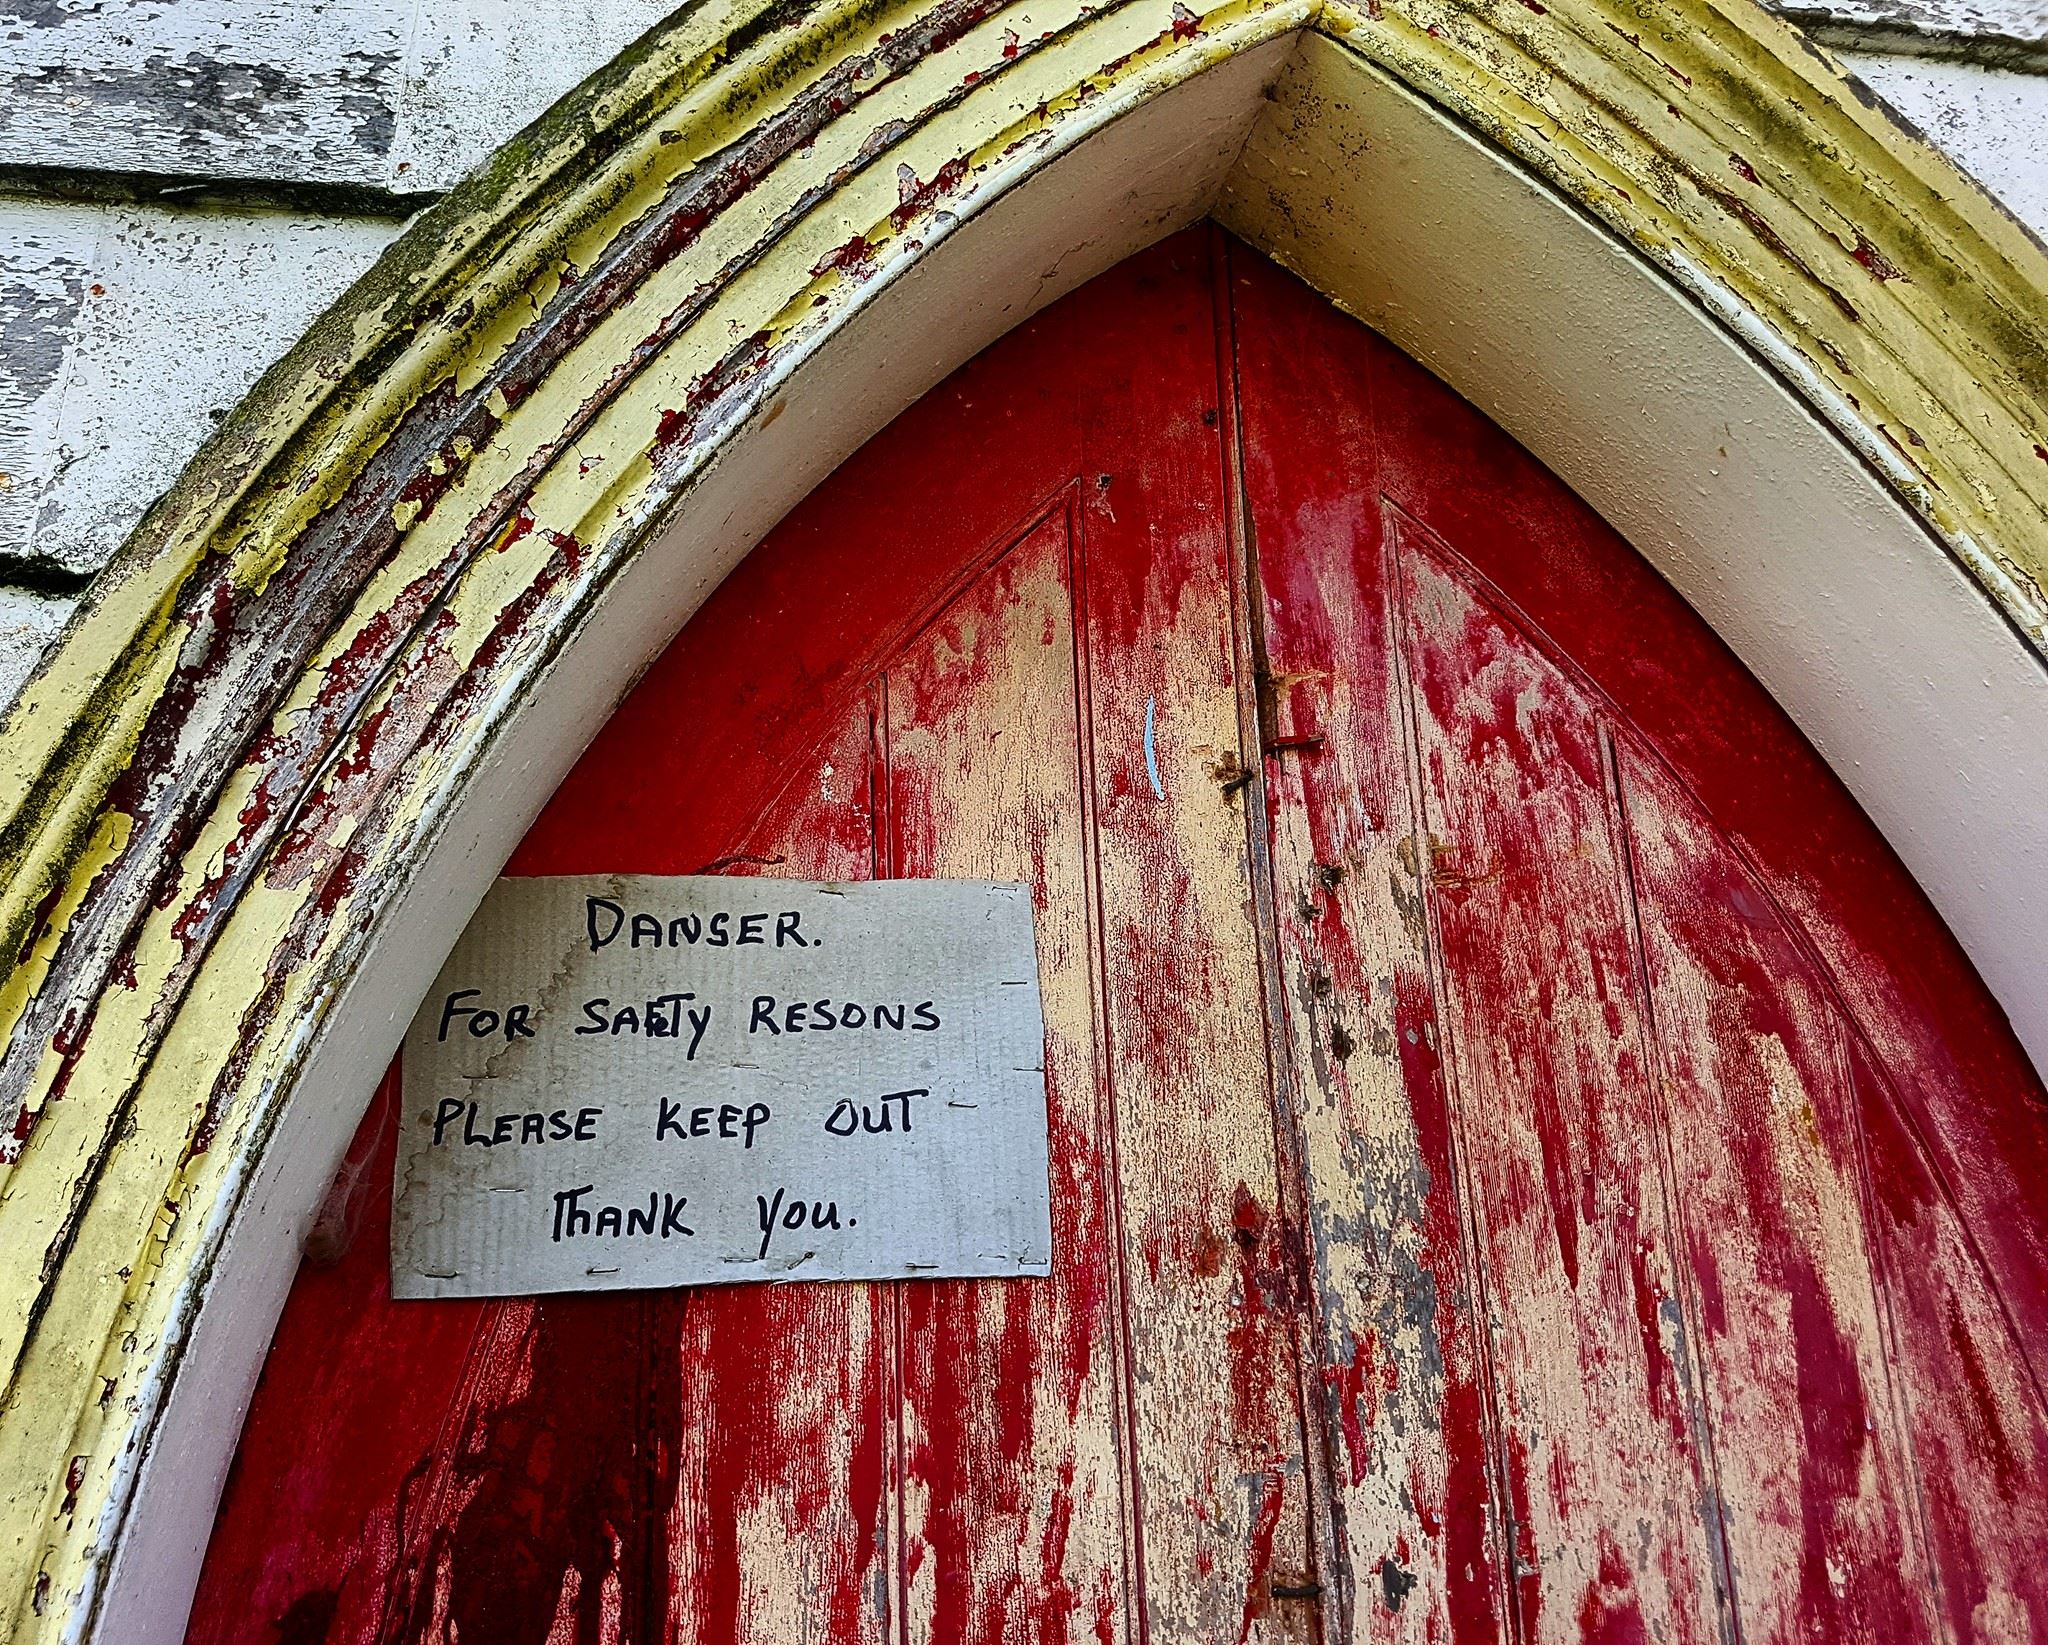 DANGER.
FOR SAFETY RESONS
PLEASE KEEP OUT
THANK YOU.